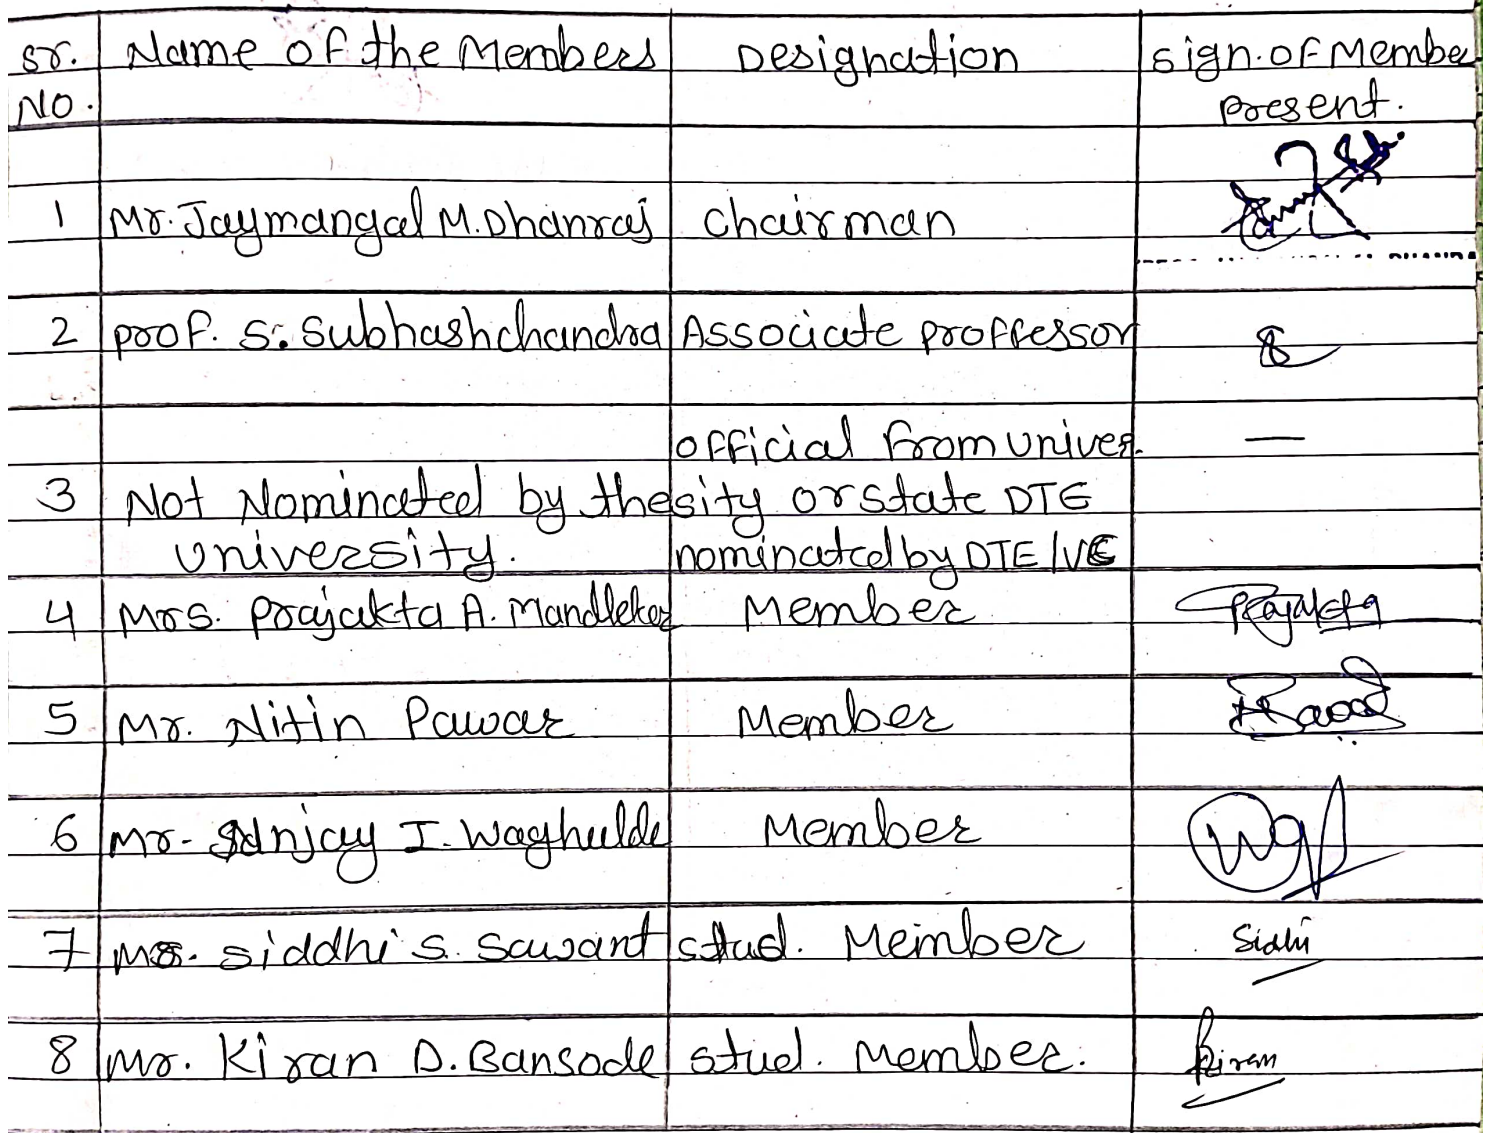 Sr. Name of the Members Designation sign. of Membe
No. present.
1 Mr. Jaymangal M. Dhanraj Chairman
2 prof. S. Subhashchandra Associate proffessor
official from univer
3 Not Nominated by the sity or state DTE —
university. nominated by DTE/VC
4 Mrs. Prajakta A. Mandleker Member Prajakta
5 Mr. Nitin Pawar Member
6 Mr. Sanjay I. Waghulde Member
7 Ms. Siddhi S. Sawant stud. Member Sidhi
8 Mr. Kiran D. Bansode stud. Member. Kiran